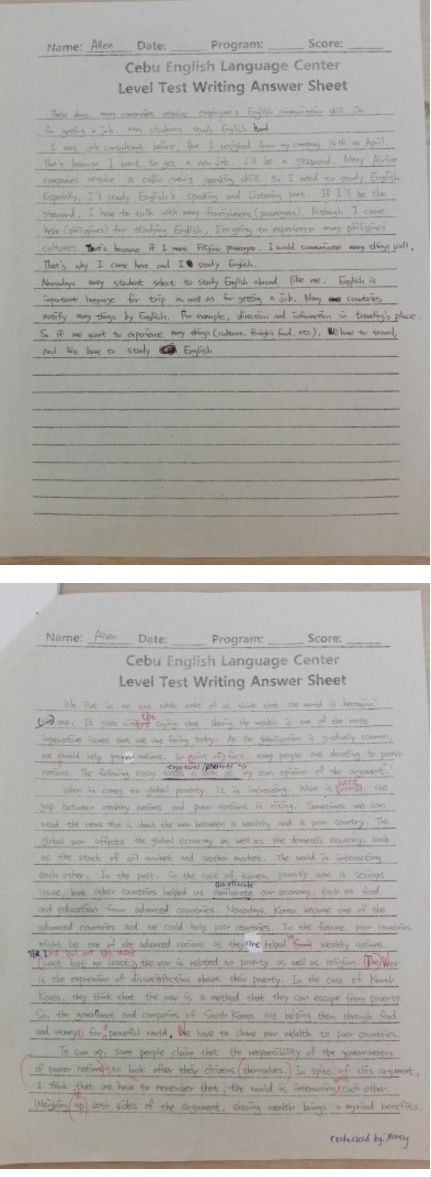 Name: Allen Date: Program: Score:
Cebu English Language Center
Level Test Writing Answer Sheet
These days, many companies require employee's English communication skill. So
for getting a job, many students study English hard
I was job consultant before, But I resigned from my company 16th on April.
That's because I want to get a new job. I'll be a steward. Many Airline
companies require a cabin crew's speaking skill. So I need to study English.
Especially, I'll study English's speaking and Listening part. If I'll be the
steward, I have to talk with many foreigners (passengers). Although I came
here (philippines) for studying English, I'm going to experience many philippines'
cultures. That's because if I meet Filipino passenger, I would communicate many things well.
That's why I came here and I study English.
Nowadays many student select to study English abroad like me. English is
important language for trip as well as for getting a job. Many countries
notify many things by English. For example, direction and information in traveling's place.
So if we want to experience many things (culture, foreign food, etc), We have to travel,
and We have to study English
Name: Allen Date: Program: Score:
Cebu English Language Center
Level Test Writing Answer Sheet
We live in an age while most of us think that the world is becoming
one. It goes without the saying that sharing the wealth is one of the most
imperative issues that we are facing today. As the globalization is gradually common,
we should help poorer nations. In point of fact, many people are donating to poorer
expresses/presents
nations. The following essay takes a look at my own opinion of the argument.
When it comes to global poverty, it is increasing. What is worse, the
gap between wealthy nations and poor nations is rising. Sometimes we can
read the news that is about the war between a wealthy and a poor country. The
global war affects the global economy as well as the domestic economy, such
as the stock of oil market and another market. The world is interacting
each other. In the past, in the case of Korea, poverty was a serious
ameliorate
issue, but other countries helped us our economy, such as food
and education from advanced countries. Nowadays, Korea become one of the
advanced countries and we could help poor countries. In the future, poor countries
might be one of the advanced nations as they are helped by wealthy nations.
(Last but no least,) the war is related to poverty as well as religion. The War
is the expression of dissatisfaction about their poverty. In the case of North
Korea, they think that the war is a method that they can escape from poverty.
So, the government and companies of South Korea are helping them through food
and money for a peaceful world. We have to share our wealth to poor countries.
To sum up, some people claim that the responsibility of the governments
of poorer nations is to look after their citizens themselves. In spite of this argument,
I think that we have to remember that, the world is interacting each other.
Weighing up both sides of the argument, sharing wealth brings a myriad benefits.
rechecked by: Marcy